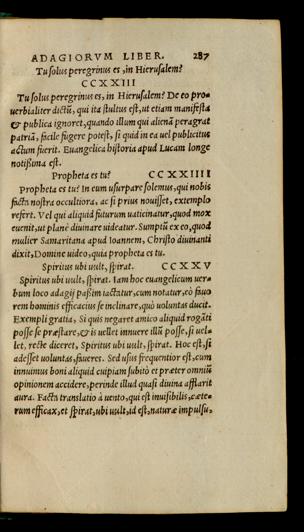 ADAGIORVM LIBER. 287
Tu solus peregrinus es, in Hierusalem?
CCXXIII
Tu solus peregrinus es, in Hierusalem? De eo pro-
uerbialiter dictũ, qui ita stultus est, ut etiam manifesta
& publica ignoret, quando illum qui alienã peragrat
patriã, facile fugere potest, si quid in ea uel publicitus
actum fuerit. Euangelica historia apud Lucam longe
notissima est.
Propheta es tu? CCXXIIII
Propheta es tu? In eum usurpare solemus, qui nobis
facta nostra occultiora, ac si prius nouisset, extemplo
refert. Vel qui aliquid futurum uaticinatur, quod mox
euenit, ut planè diuinare uideatur. Sumptũ ex eo, quod
mulier Samaritana apud Ioannem, Christo diuinanti
dixit, Domine uideo, quia propheta es tu.
Spiritus ubi uult, spirat. CCXXV
Spiritus ubi uult, spirat. Iam hoc euangelicum uer-
bum loco adagij passim iactatur, cum notatur, eò fauo
rem hominis efficacius se inclinare, quò uoluntas ducit.
Exempli gratia, Si quis negaret amico aliquid rogãti
posse se præstare, & is uellet innuere illũ posse, si uel-
let, recte diceret, Spiritus ubi uult, spirat. Hoc est, si
adesset uoluntas, faueres. Sed usus frequentior est, cum
innuimus boni aliquid cuipiam subitò et præter omniũ
opinionem accidere, perinde illud quasi diuina afflarit
aura. Facta translatio à uento, qui est inuisibilis, cæte-
rum efficax, et spirat, ubi uult, id est, naturæ impulsu,